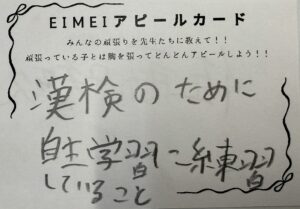 EIMEIアピールカード
みんなの頑張りを先生たちに教えて！！
頑張っている子とは胸を張ってどんどんアピールしよう！！
漢検のために
自主学習に練習
していること